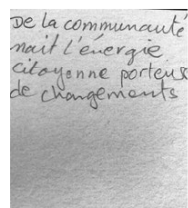 De la communauté
nait l'énergie
citoyenne porteuse
de changements